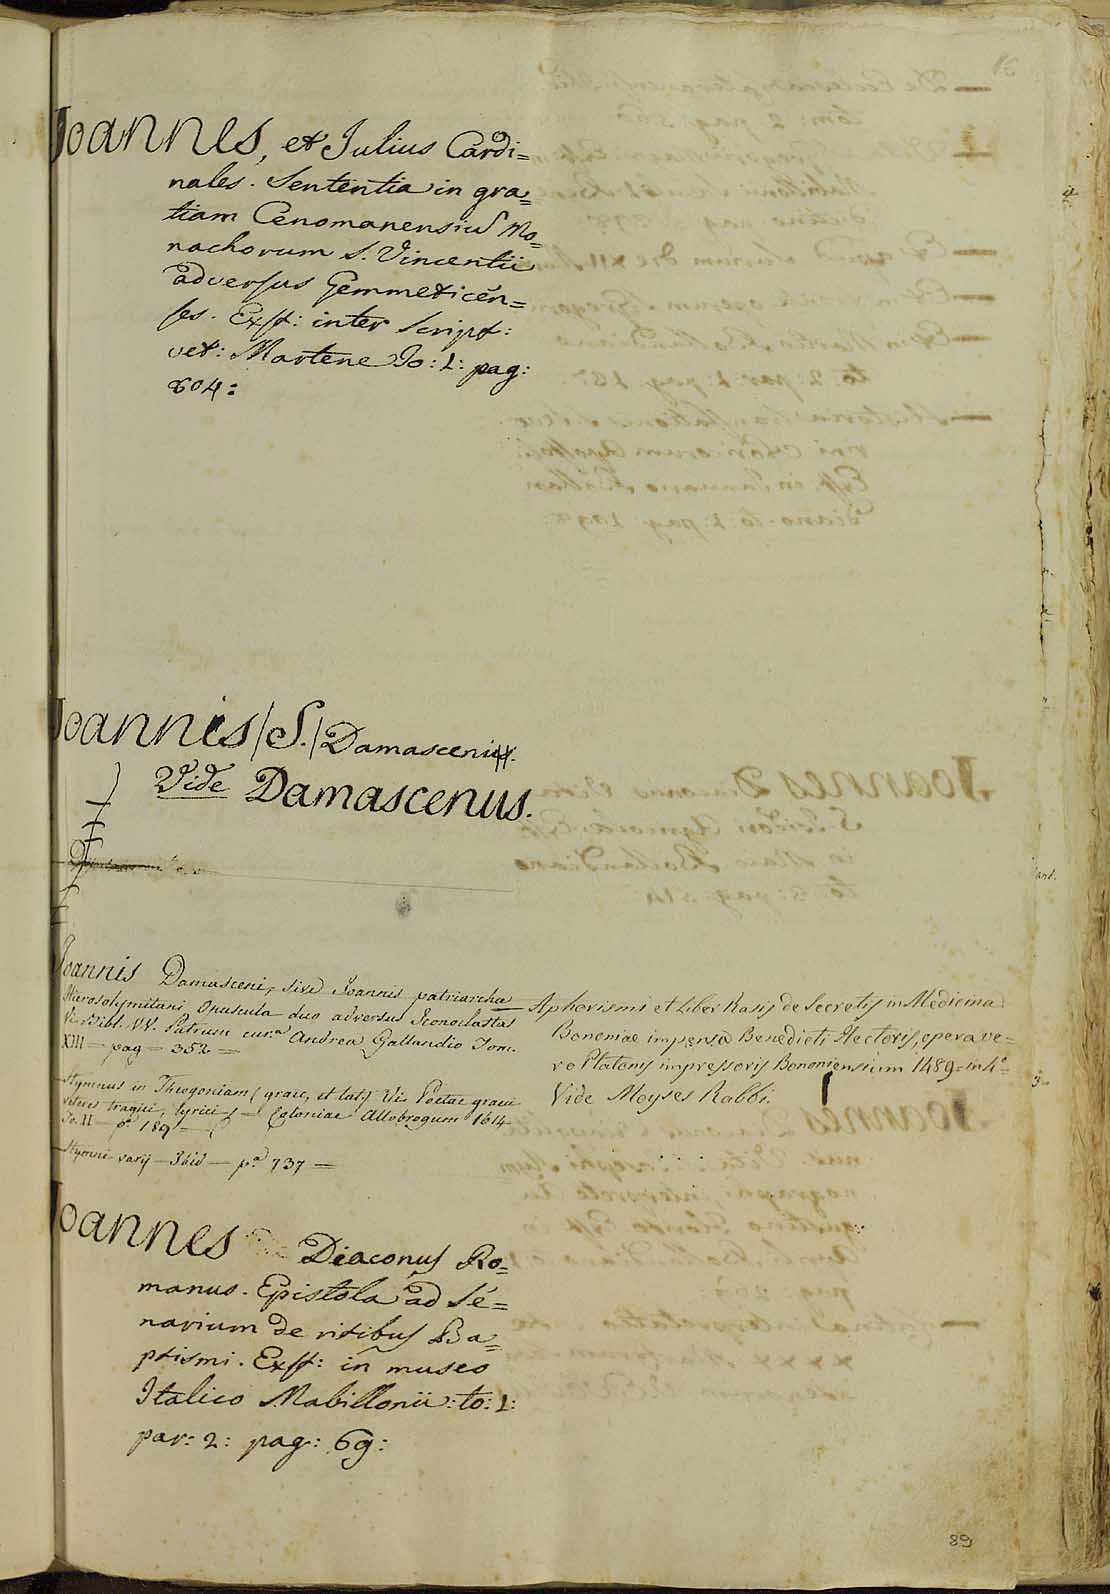 Joannes, et Julius Cardi=
nales. Sententia in gra=
tiam Cenomanensiũ Mo=
nachorum S. Vincentii
adversus Gemmeticen=
ses. Exst: inter Script:
vet: Martene To: 1: pag:
604:
Joannis /S./ Damasceni
Vide Damascenus.
Joannis Damasceni, sive Joannis patriarcha
Hierosolymitani Opuscula duo adversus Iconoclastas
Vi Bibl. VV. Patrum cur.ª Andrea Gallandio Tom.
XIII — pag — 352 =
— Hymnus in Theogoniam (graec, et lat) Vi Poetae graeci
veteres tragici, lyrici — Coloniae Allobrogum 1614
To. II — pª 189 —
— Hymni varij — Ibid — pª 737 —
— Aphorismi et Liber Rasis de Secretis in Medicina
Bononiae impensa Benedicti Hectoris, opera ve=
ro Platonis impressoris Bononiensium 1489 = in 4º
Vide Moyses Rabbi.
Joannes Diaconus Ro=
manus. Epistola ad Se=
narium de ritibus Ba=
ptismi. Exst: in museo
Italico Mabillonii: to: 1:
par: 2: pag: 69:
89